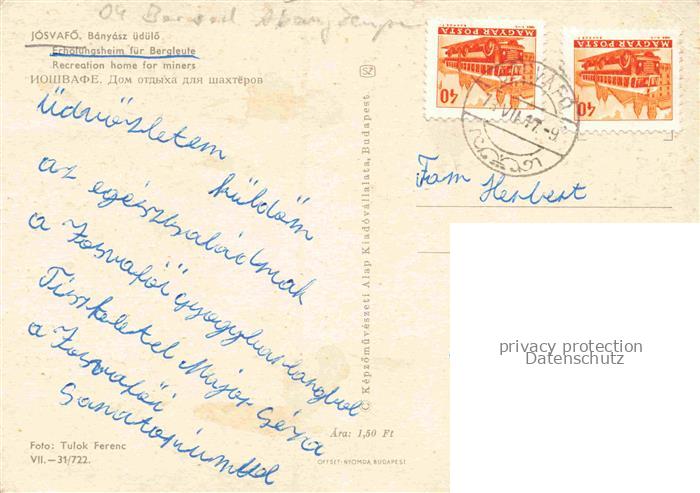 04 Borsod Abauj Zemplen
JÓSVAFŐ, Bányász üdülő
Erholungsheim für Bergleute
Recreation home for miners
ИОШВАФЕ. Дом отдыха для шахтёров
Üdvözletem küldöm
az egész családnak
a Josvafői gyogybarlangbol
Tisztelettel Major Géza
a Josvafői
Sanatoriumbol
Foto: Tulok Ferenc
VII.—31/722.
SZ
© Képzőművészeti Alap Kiadóvállalata, Budapest
Ára: 1,50 Ft
OFFSET-NYOMDA, BUDAPEST
MAGYAR POSTA
40
MAGYAR POSTA
40
JÓSVAFŐ
VII.17.-9
Fam Herbert
privacy protection
Datenschutz